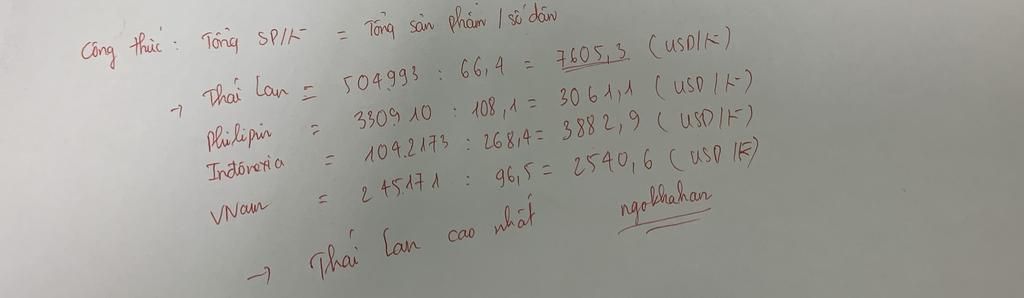 Công thức: Tổng SP/K = Tổng sản phẩm / số dân
→ Thái Lan = 504.993 : 66,4 = 7605,3 (USD/K)
Philipin = 330.910 : 108,1 = 3061,1 (USD/K)
Indônêxia = 104.2173 : 268,4 = 3882,9 (USD/K)
VNam = 245.171 : 96,5 = 2540,6 (USD/K)
→ Thái Lan cao nhất
ngokhahan